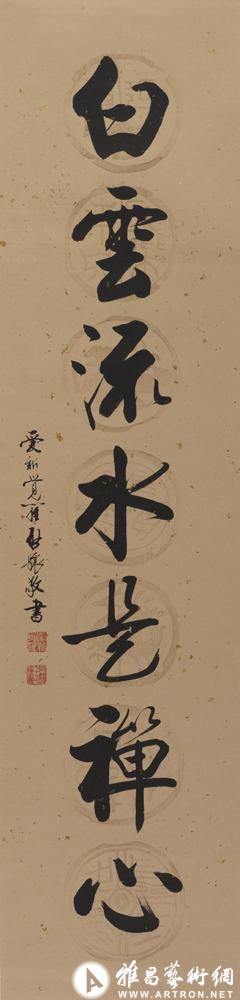 白雲流水是禪心
愛新覺羅啟驤敬書
雅昌藝術網
WWW.ARTRON.NET